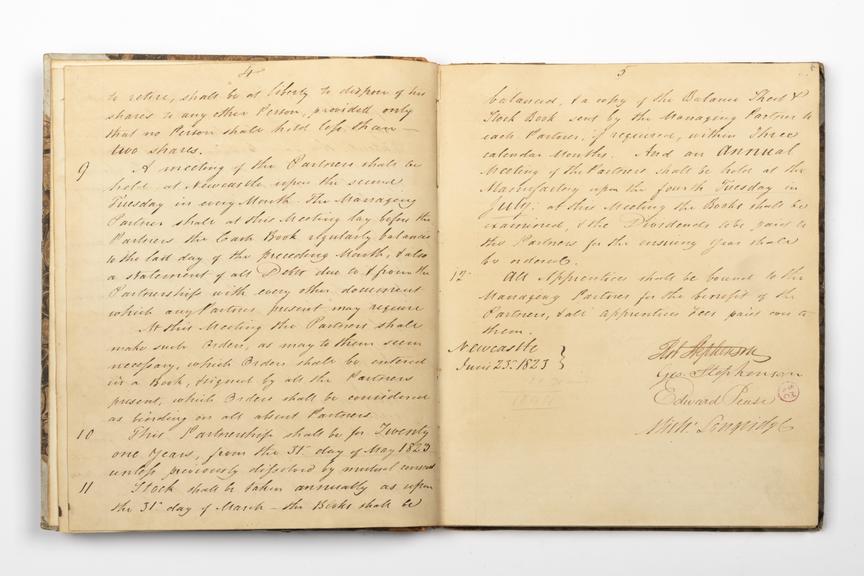 4
to retire, shall be at liberty to dispose of his
shares to any other Person, provided only
that no Person shall hold less than
two shares.
9 A meeting of the Partners shall be
held, at Newcastle upon the second
Tuesday in every Month. The Managing
Partner shall at this Meeting lay before the
Partners the Cash Book regularly balanced
to the last day of the preceding Month, & also
a statement of all Debts due to & from the
Partnership with every other document
which any Partner present may require
At this Meeting the Partners shall
make such Orders, as may to them seem
necessary, which Orders shall be entered
in a Book, & signed by all the Partners
present, which Orders shall be considered
as binding on all absent Partners.
10 This Partnership shall be for Twenty
one Years, from the 31st day of May 1823
unless previously dissolved by mutual consent
11 Stock shall be taken annually as upon
the 31st day of March – the Books shall be
5
balanced, & a copy of the Balance Sheet &
Stock Book sent by the Managing Partner to
each Partner, if required, within Three
calendar Months. And an Annual
Meeting of the Partners shall be held at the
Manufactory upon the fourth Tuesday in
July: at this Meeting the Books shall be
examined, & the Dividends to be paid to
the Partners for the ensuing Year shall
be ordered.
12 All Apprentices shall be bound to the
Managing Partner for the benefit of the
Partners, & all apprentices Fees paid over to
them.
Newcastle
June 23rd 1823 }
Robt Stephenson
Geo Stephenson
Edward Pease
Michl Longridge